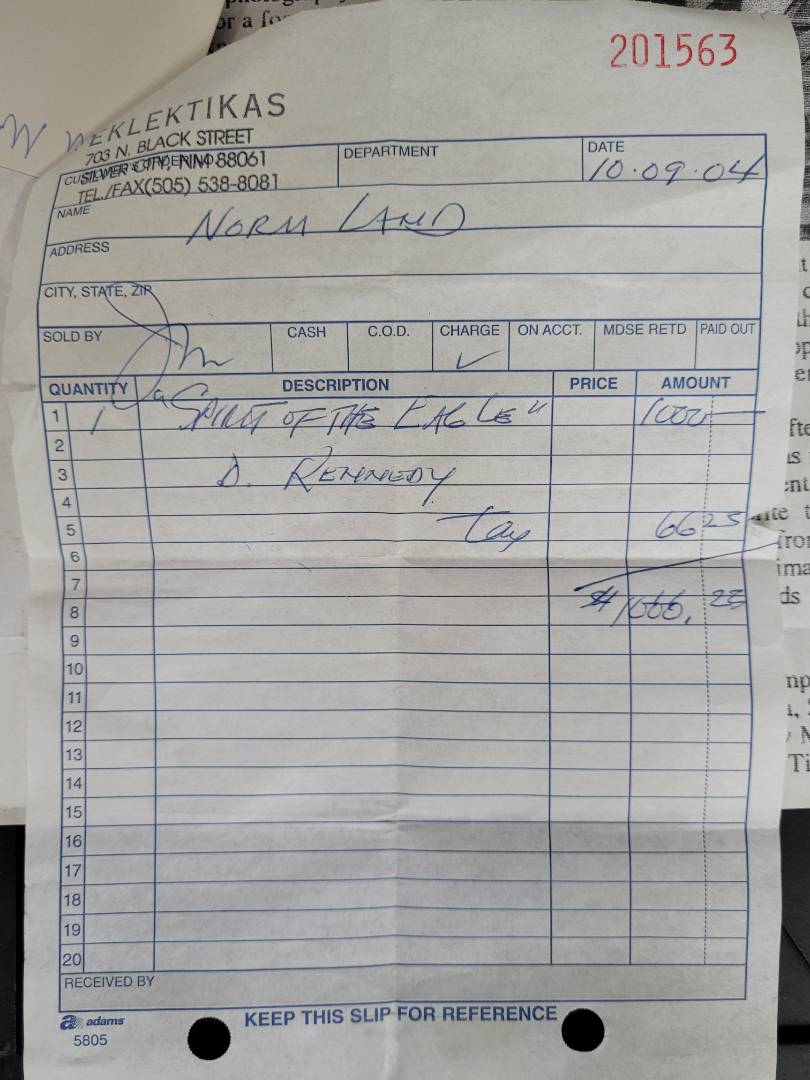 201563
EKLEKTIKAS
703 N. BLACK STREET
SILVER CITY, NM 88061
TEL./FAX(505) 538-8081
DEPARTMENT
DATE
10.09.04
NAME
NORM LAND
ADDRESS
CITY, STATE, ZIP
SOLD BY
CASH
C.O.D.
CHARGE ✓
ON ACCT.
MDSE RETD
PAID OUT
QUANTITY DESCRIPTION PRICE AMOUNT
1 1 "SPIRIT OF THE EAGLE" 1000—
2
3 D. KENNEDY
4
5 Tax 66 25
6
7
8 $1066.25
9
10
11
12
13
14
15
16
17
18
19
20
RECEIVED BY
adams
5805
KEEP THIS SLIP FOR REFERENCE